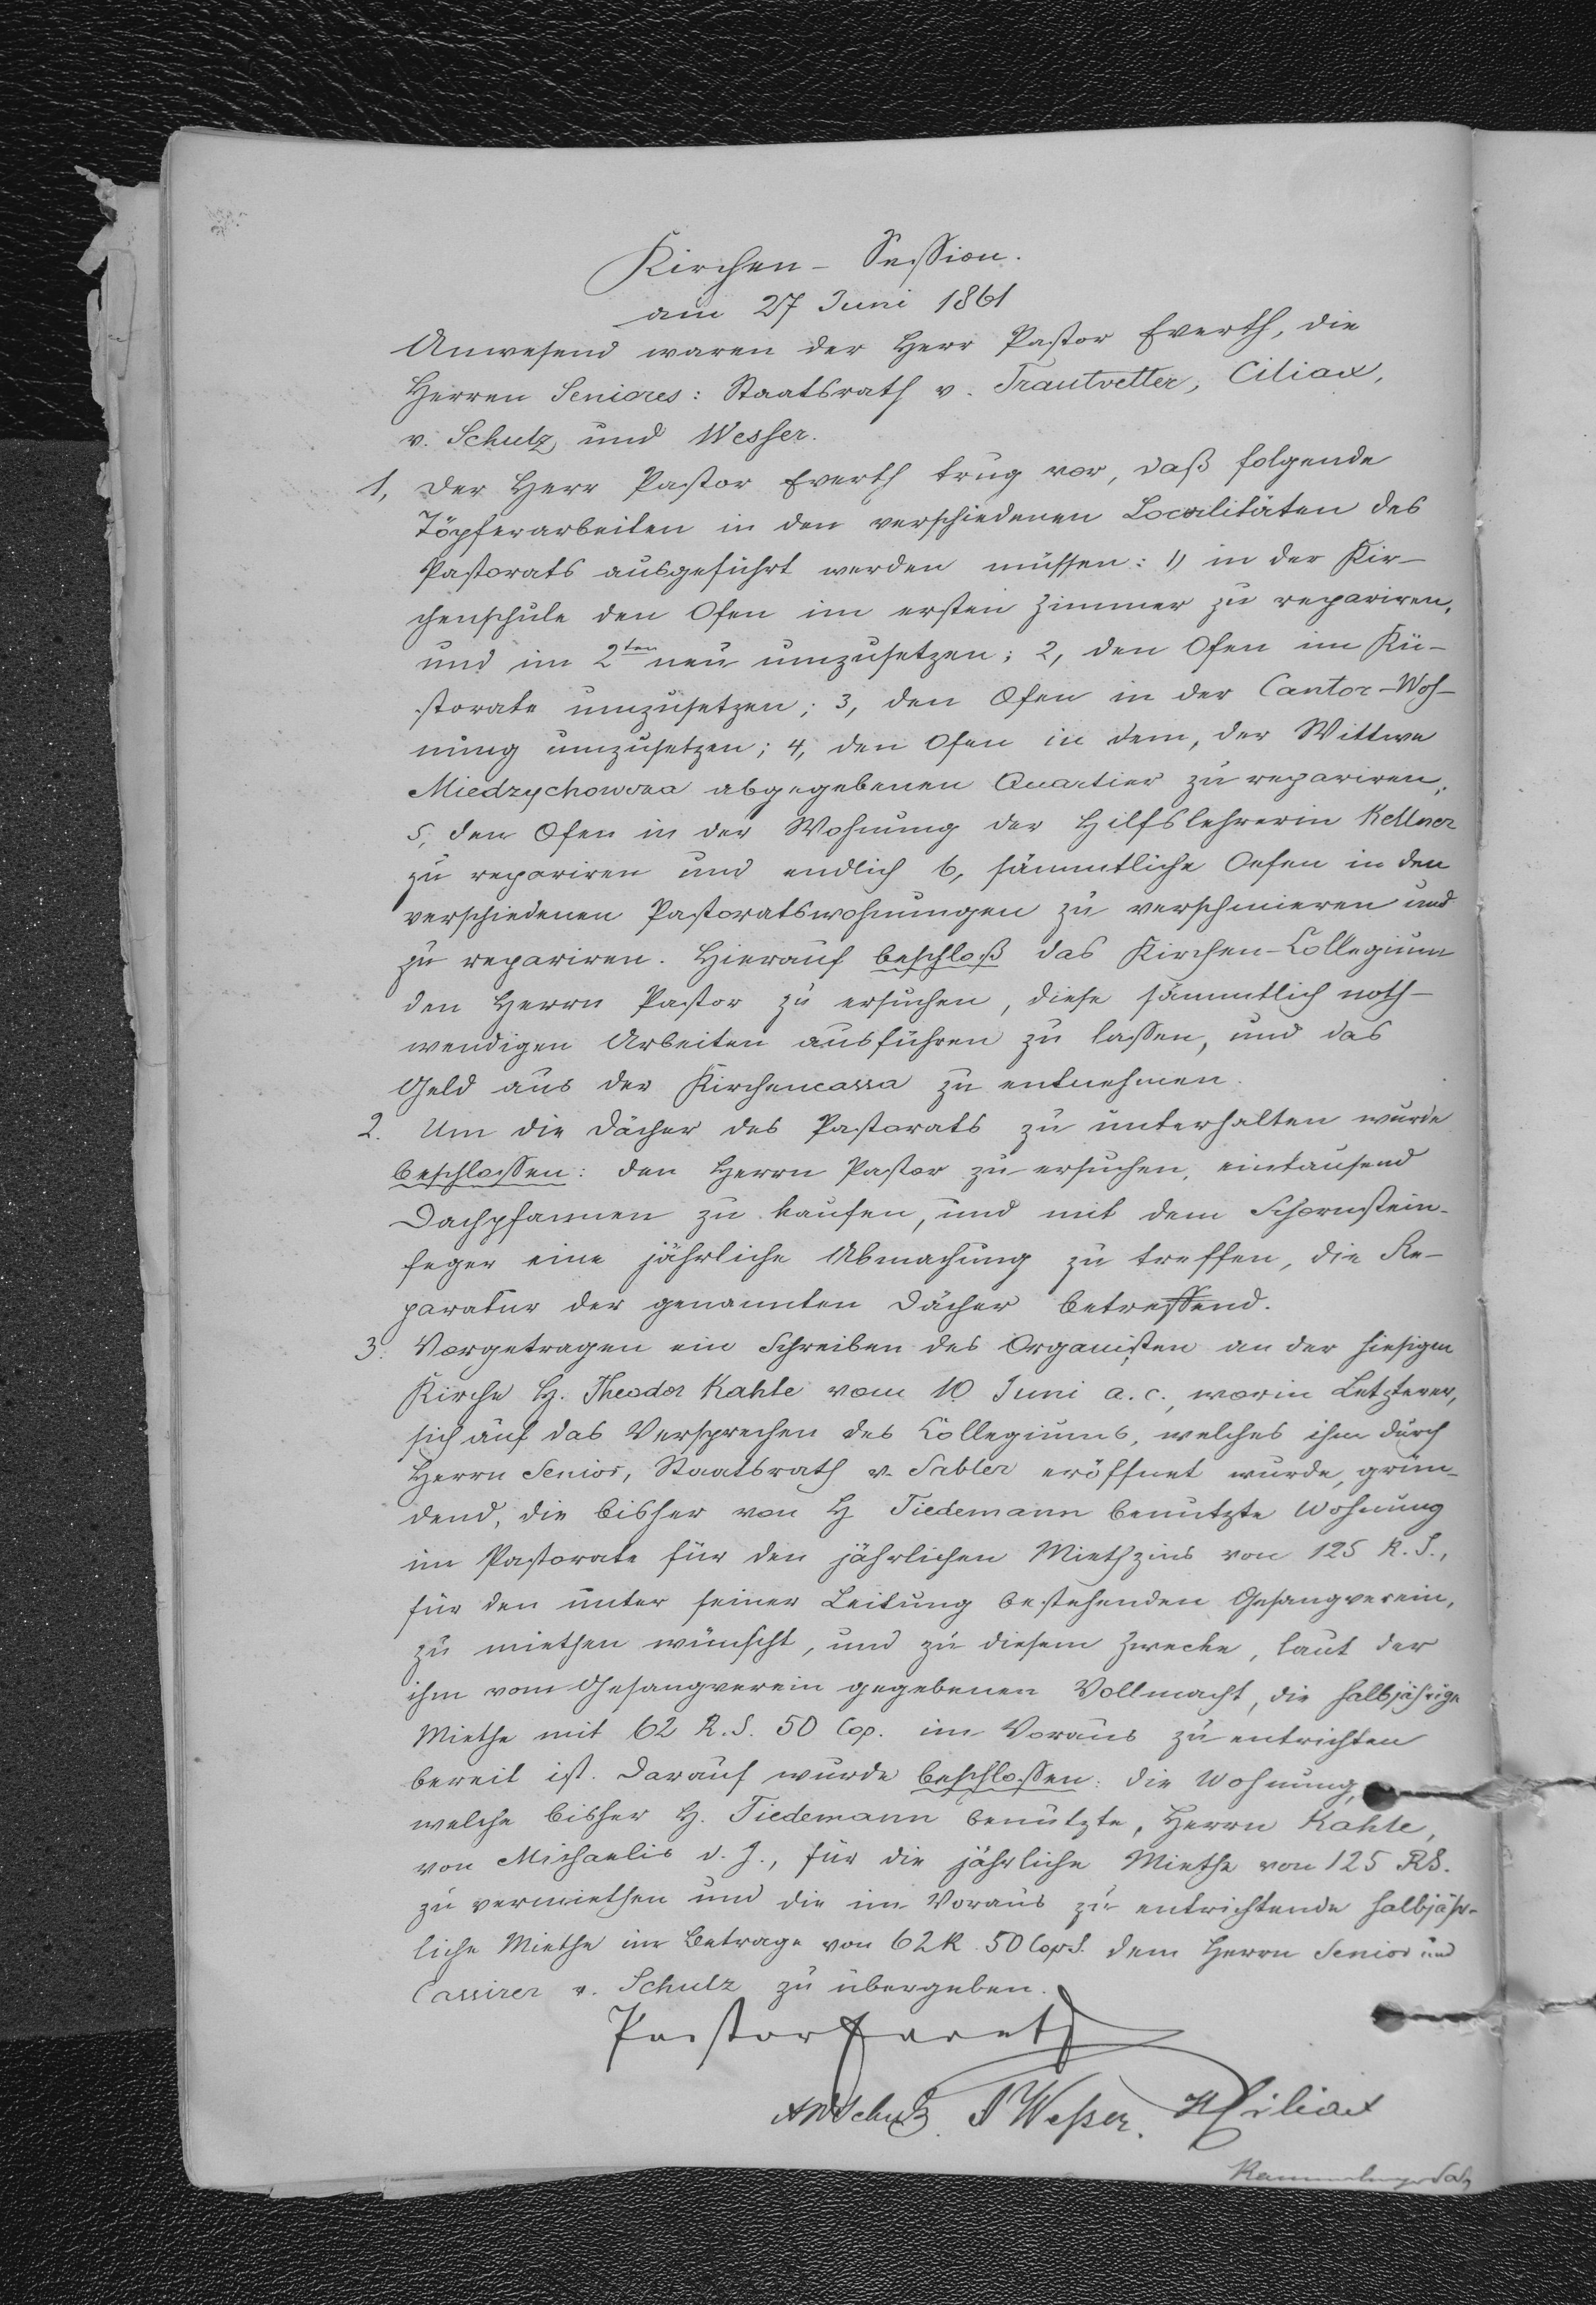 Kirchen-Session.
am 27 Juni 1861
Anwesend waren der Herr Pastor Everth, die
Herren Seniores: Staatsrath v. Trautvetter, Ciliax,
v. Schulz, und Wesser.
1, Der Herr Pastor Everth trug vor, daß folgende
Töpferarbeiten in den verschiedenen Localitäten des
Pastorats ausgeführt werden müssen: 1) in der Kir-
chenschule den Ofen im ersten Zimmer zu repariren,
und im 2ten neu umzusetzen; 2, den Ofen im Kü-
storate umzusetzen; 3, den Ofen in der Cantor-Woh-
nung umzusetzen; 4, den Ofen in dem, der Wittwe
Miedzychowska abgegebenen Quartier zu repariren,
5, den Ofen in der Wohnung der Hilfslehrerin Kellner
zu repariren und endlich 6, sämmtliche Oefen in den
verschiedenen Pastoratswohnungen zu verschmieren und
zu repariren. Hierauf beschloß das Kirchen-Collegium
den Herrn Pastor zu ersuchen, diese sämmtlich noth-
wendigen Arbeiten ausführen zu lassen, und das
Geld aus der Kirchencassa zu entnehmen.
2. Um die Dächer des Pastorats zu unterhalten wurde
beschlossen: den Herrn Pastor zu ersuchen, eintausend
Dachpfannen zu kaufen, und mit dem Schornstein-
feger eine jährliche Abmachung zu treffen, die Re-
paratur der genannten Dächer betreffend.
3. Vorgetragen ein Schreiben des Organisten an der hiesigen
Kirche H. Theodor Kahle vom 10 Juni a. c., worin Letzterer,
sich auf das Versprechen des Collegiums, welches ihm durch
Herrn Senior, Staatsrath v. Sabler eröffnet wurde, grün-
dend, die bisher von H Tiedemann benutzte Wohnung
im Pastorate für den jährlichen Miethzins von 125 R. S.,
für den unter seiner Leitung bestehenden Gesangverein,
zu miethen wünscht, und zu diesem Zwecke, laut der
ihm vom Gesangverein gegebenen Vollmacht, die halbjährige
Miethe mit 62 R. S. 50 Cop. im Voraus zu entrichten
bereit ist. Darauf wurde beschlossen: die Wohnung,
welche bisher H. Tiedemann benutzte, Herrn Kahle,
von Michaelis d. J., für die jährliche Miethe von 125 RS.
zu vermiethen und die im Voraus zu entrichtende halbjähr-
liche Miethe im Betrage von 62 R. 50 Cop S. dem Herrn Senior und
Cassirer v. Schulz zu übergeben.
Pastor Everth
Schulz. Wesser. Ciliax